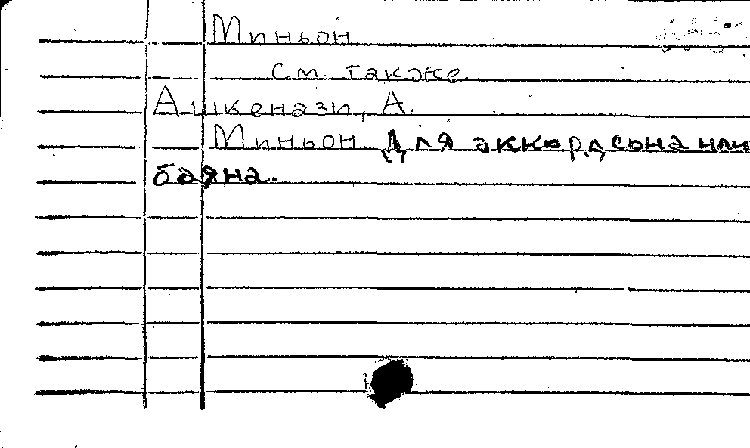 Миньон
см. также
Ашкенази, А.
Миньон Для аккордеона или
баяна.